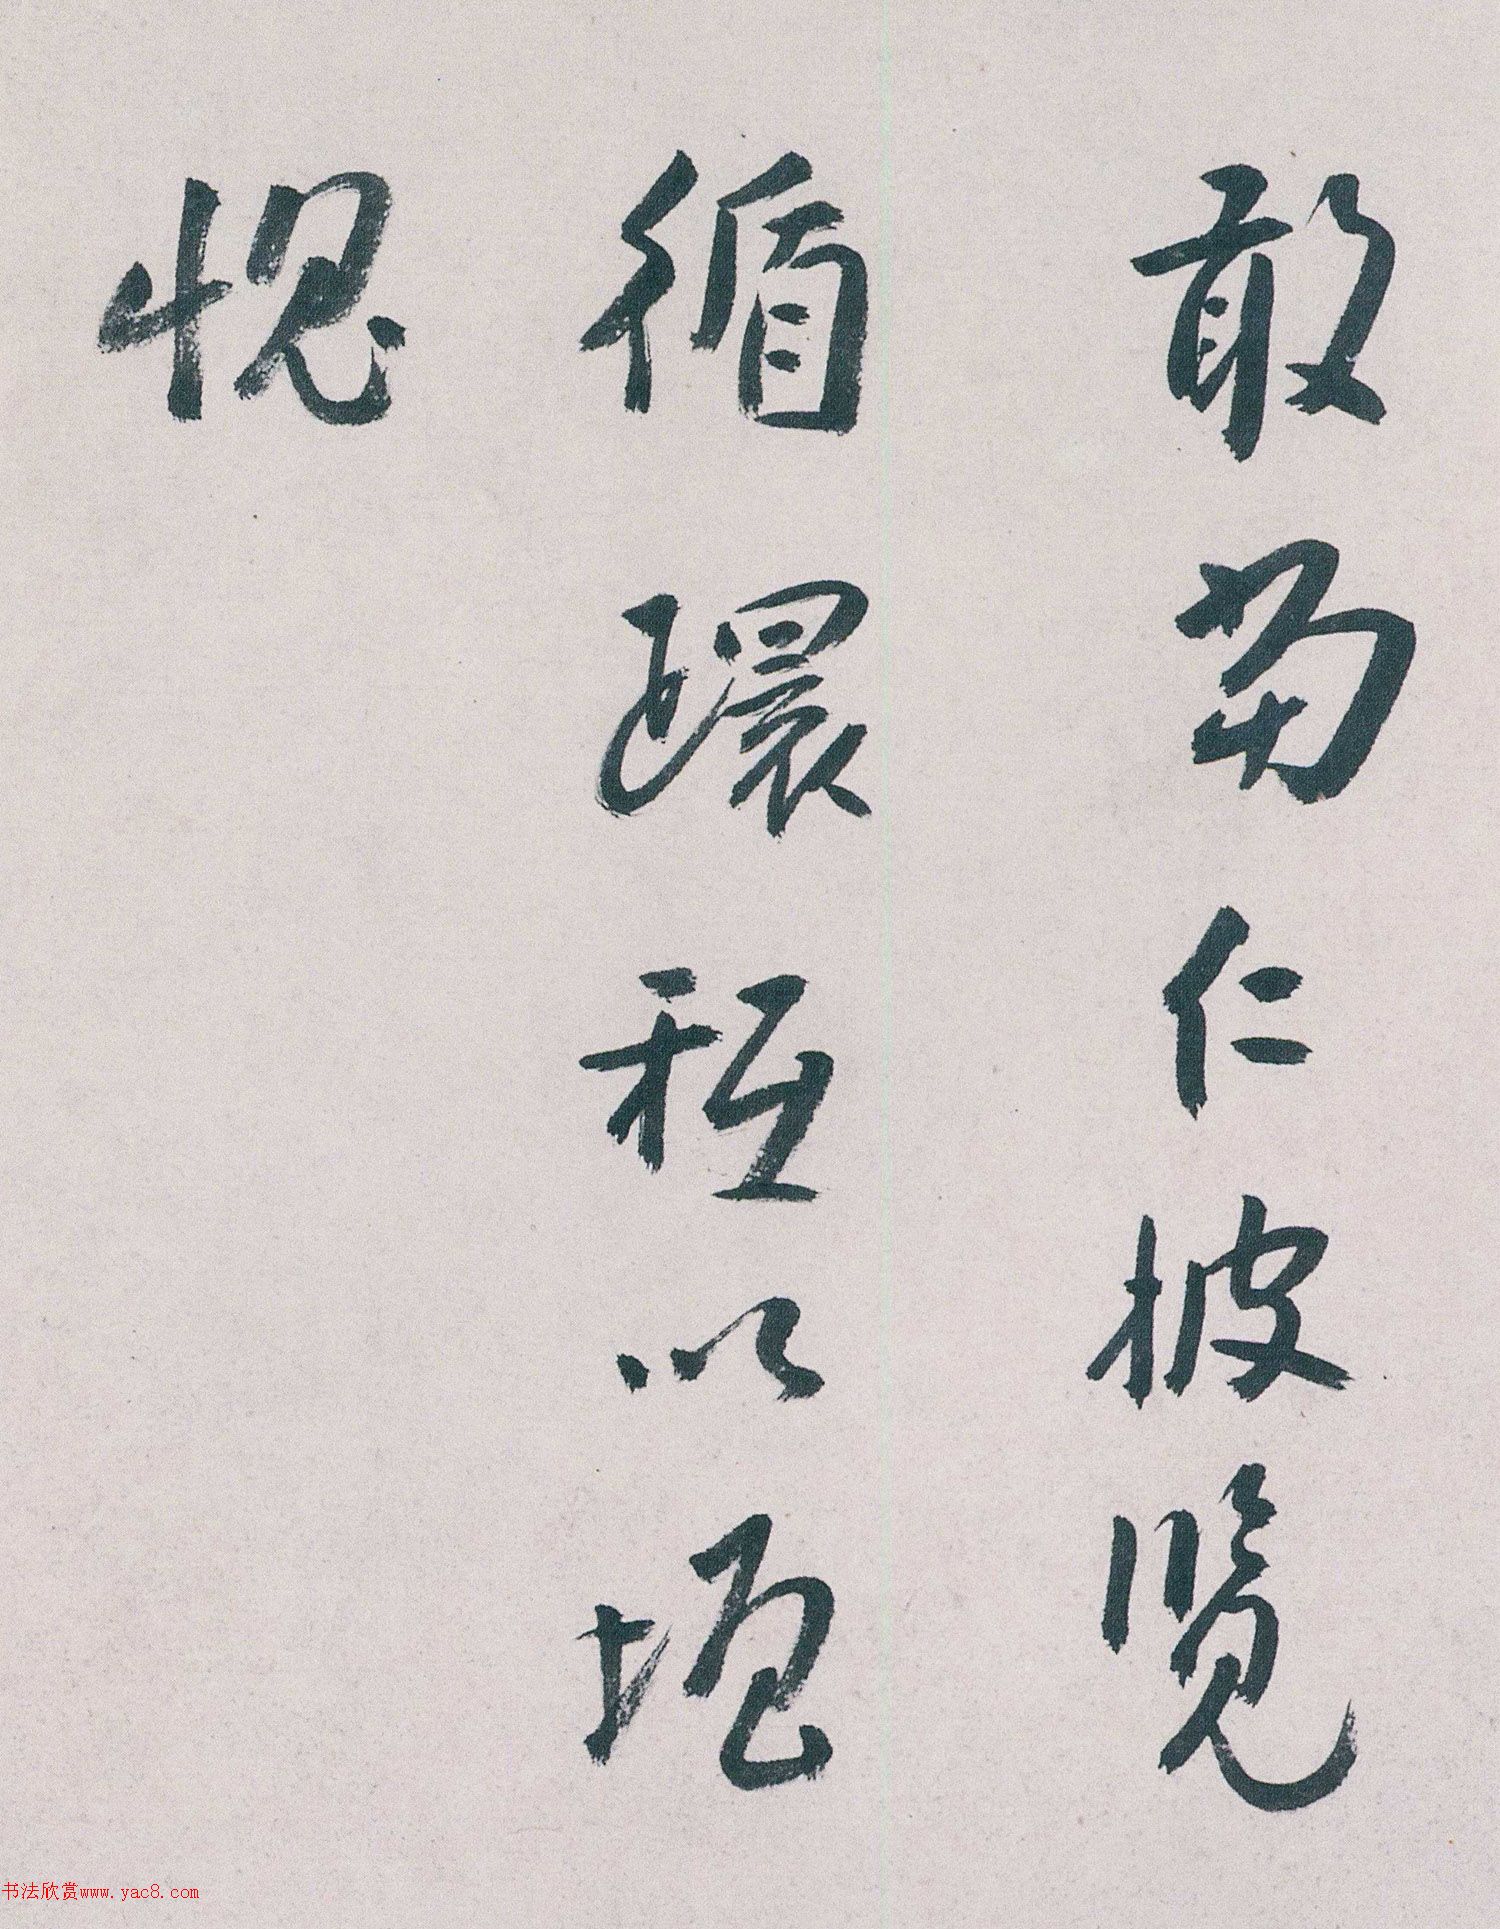 敢當仁披覽
循環秪以增
愧
书法欣赏www.yac8.com